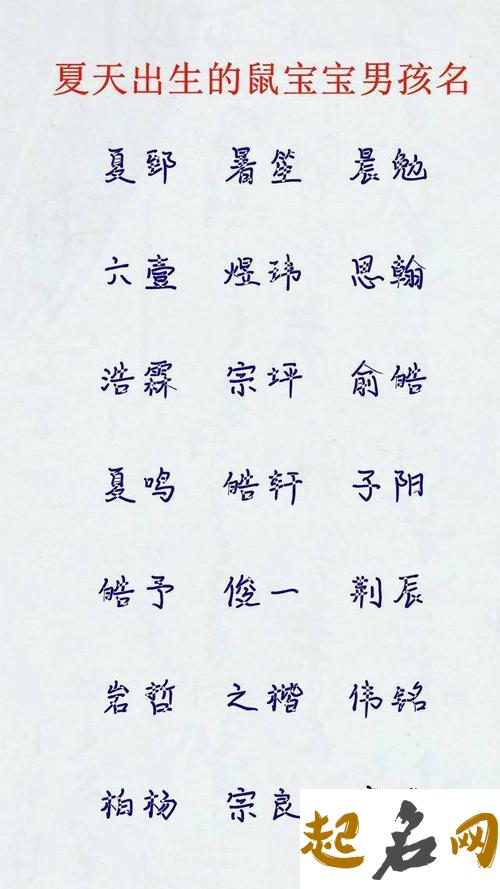 夏天出生的鼠宝宝男孩名
夏郢 暑笠 晨勉
六壹 煜玮 思翰
浩霖 宗坪 俞皓
夏鸣 皓轩 子阳
皓予 俊一 荆辰
岩哲 之楷 伟铭
柏杨 宗良
起名网